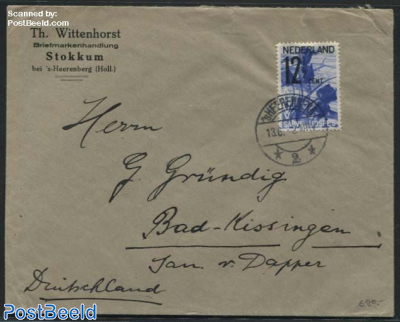 Scanned by:
PostBeeld.com
Th. Wittenhorst
Briefmarkenhandlung
Stokkum
bei 's-Heerenberg (Holl.)
NEDERLAND
12
CENT
2
Herrn
G Gründig
Bad-Kissingen
San. v. Dapper
Deutschland
PostBeeld